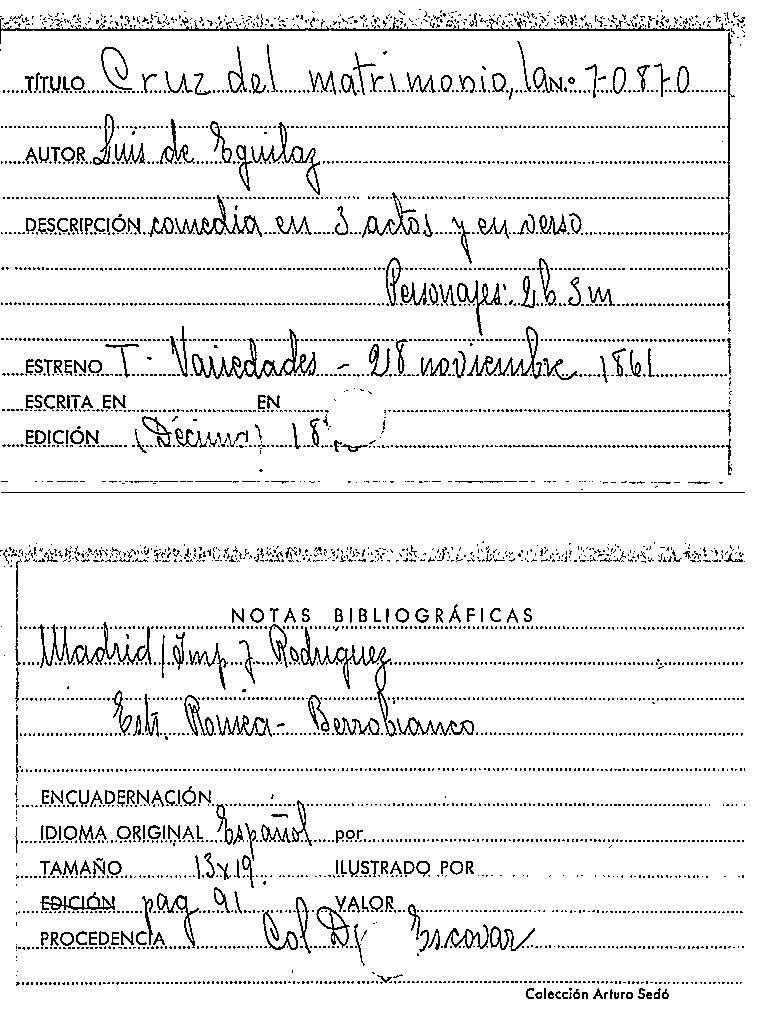 TÍTULO Cruz del matrimonio, la N.º 70870
AUTOR Luis de Eguilaz
DESCRIPCIÓN comedia en 3 actos y en verso
Personajes: 2h 3m
ESTRENO T. Variedades - 28 noviembre 1861
ESCRITA EN EN
EDICIÓN (Décima) 18
NOTAS BIBLIOGRÁFICAS
Madrid / Imp J. Rodriguez
Estr. Romea - Berrobianco
ENCUADERNACIÓN
IDIOMA ORIGINAL Español por
TAMAÑO 13x19 ILUSTRADO POR
EDICIÓN pag 91 VALOR
PROCEDENCIA Col Escovar
Colección Arturo Sedó